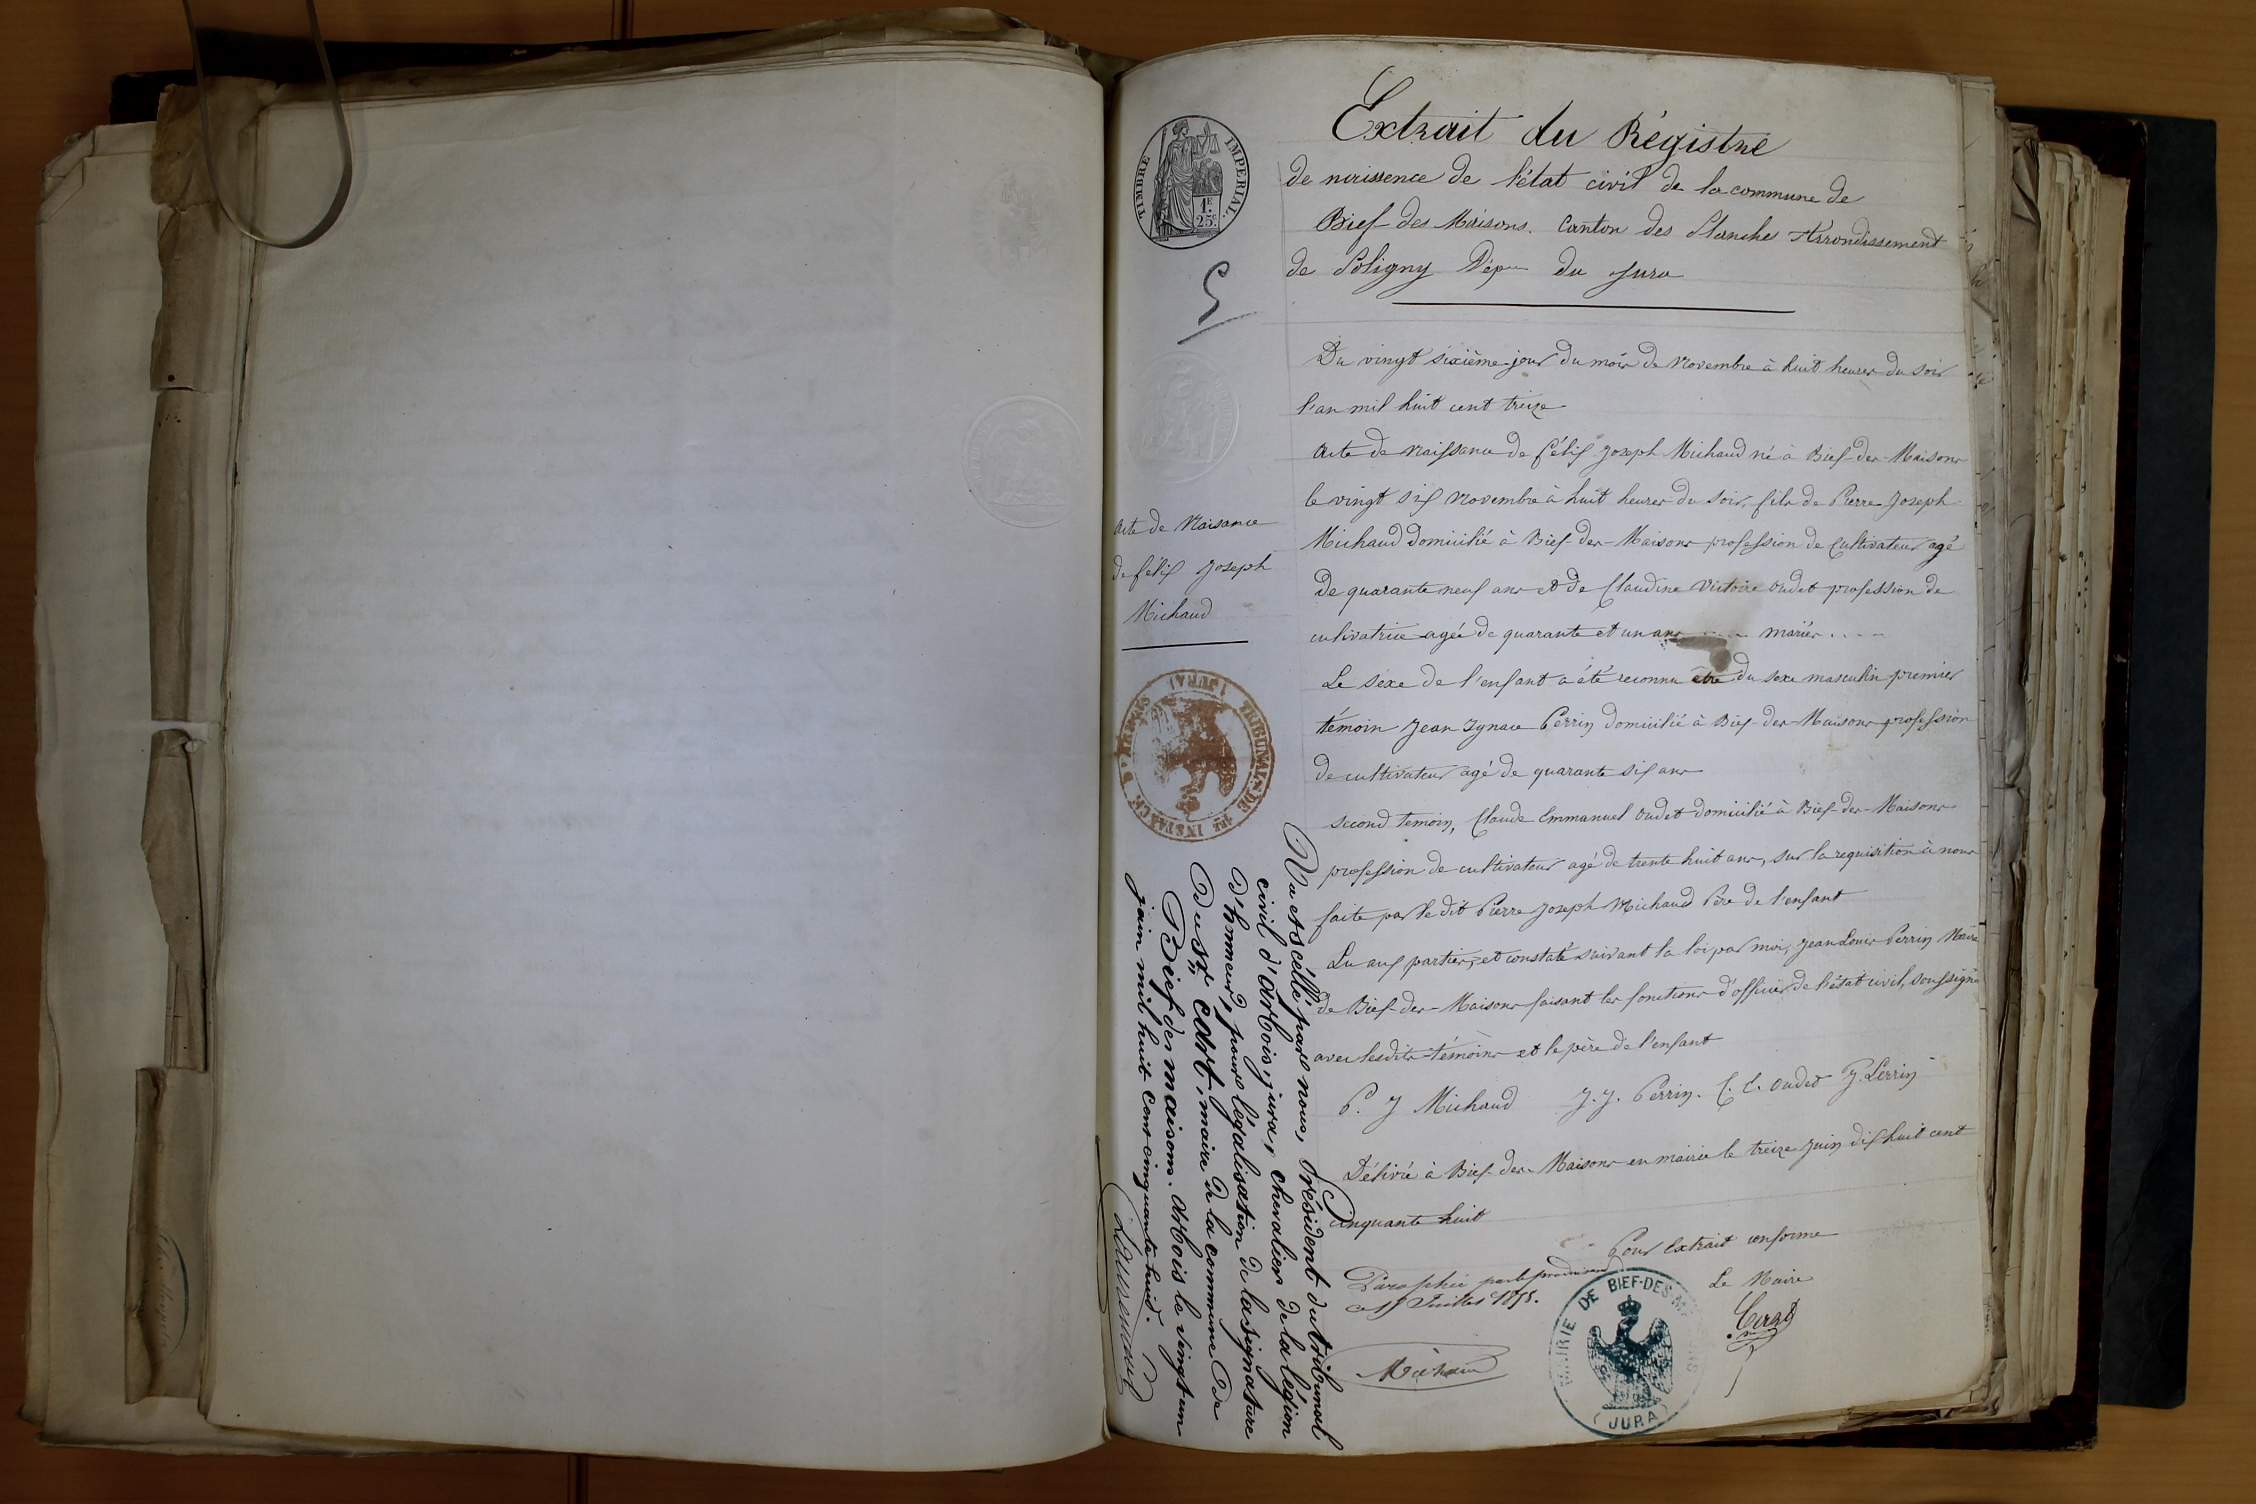 TIMBRE IMPERIAL.
1F.
25c.
5
Extrait du Régistre
de naissence de l'état civil de la commune de
Bief-des-Maisons. Canton des Planches Arrondissement
de Poligny Dép. du Jura
Du vingt sixième jour du mois de Novembre à huit heures du soir
l'an mil huit cent treize
Acte de Naissance de Félix Joseph Michaud né à Bief-des-Maisons
le vingt six Novembre à huit heures du soir, fils de Pierre Joseph
Michaud domicilié à Bief-des-Maisons profession de Cultivateur agé
de quarante neuf ans et de Claudine Victoire Oudet profession de
cultivatrice agée de quarante et un ans .... mariés ....
Le sexe de l'enfant a été reconnu être du sexe masculin premier
témoin Jean Ignace Perrin domicilié à Bief-des-Maisons profession
de cultivateur agé de quarante six ans
second temoin, Claude Emmanuel Oudet domicilié à Bief-des-Maisons
profession de cultivateur agé de trente huit ans, sur la requisition à nous
faite par le dit Pierre Joseph Michaud Père de l'enfant
Lu aux parties, et constaté suivant la loi par moi, Jean Louis Perrin Maire
de Bief-des-Maisons faisant les fonctions d'officier de l'état civil, soussigné
avec lesdits témoins et le père de l'enfant
P. J Michaud J. J. Perrin. C. E. Oudet J. Perrin
Délivré à Bief-des-Maisons en mairie le treize Juin dix huit cent
cinquante huit
Pour Extrait conforme
Le Maire
Paraphé par le
ce Juillet 1858.
Michaud
MAIRIE DE BIEF-DES-MAISONS
(JURA)
Acte de Naisance
de Félix Joseph
Michaud
TRIBUNAL DE 1RE INSTANCE D'ARBOIS
(JURA)
Vu et scellé par nous, Président du tribunal
civil d'Arbois, jura, chevalier de la légion
d'honneur, pour légalisation de la signature
du sr. Cart, maire de la commune de
Bief des maisons. Arbois le vingt un
juin mil huit cent cinquante huit.